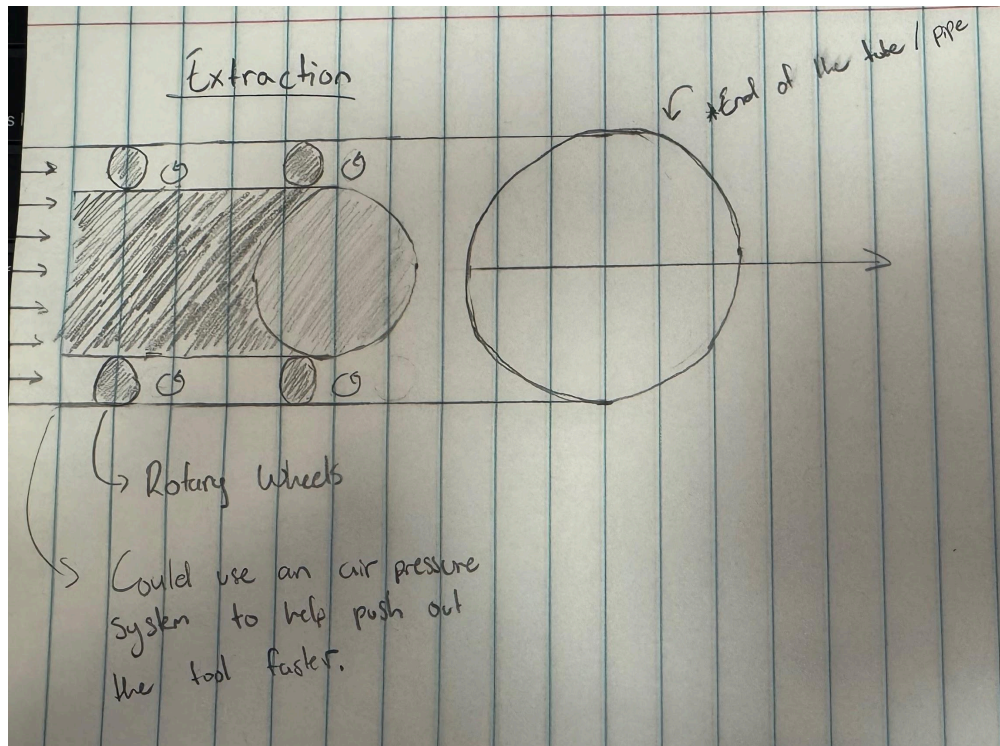 Extraction
*End of the tube / pipe
Rotary Wheels
Could use an air pressure
system to help push out
the tool faster.